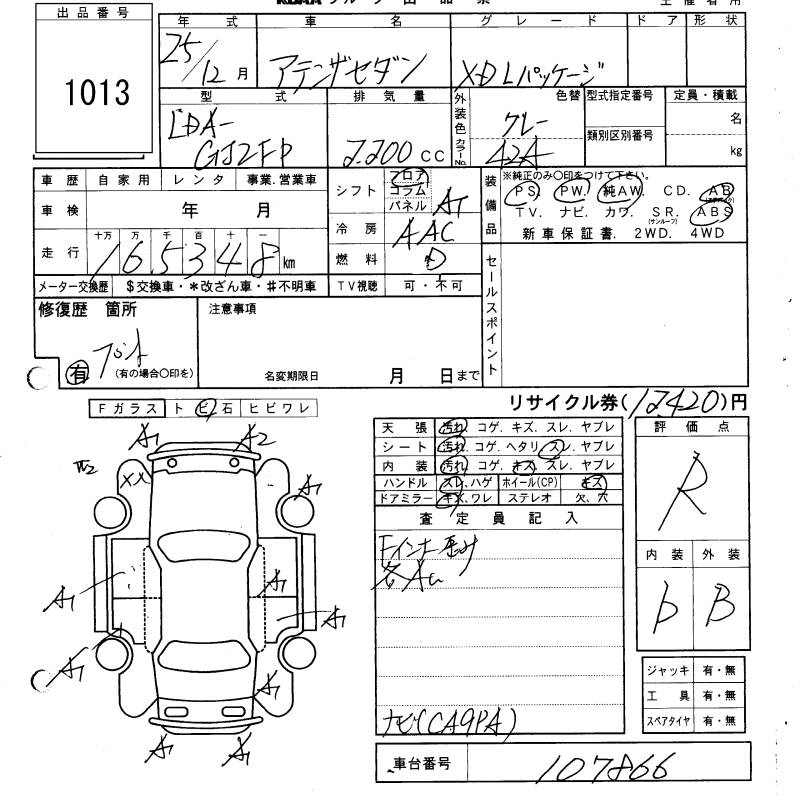 出品番号
1013
年式 車名 グレード ドア 形状
25/12月 アテンザセダン XDLパッケージ
型式 排気量 外装色 カラーNo. 色替 型式指定番号 定員・積載
LDA-GJ2FP 2,200cc グレー 42A 類別区別番号 名 kg
車歴 自家用 レンタ 事業.営業車
シフト フロア コラム パネル AT
装備品 ※純正のみ○印をつけて下さい。
PS. PW. 純AW. CD. AB
TV. ナビ. カワ. SR. (サンルーフ) ABS
新車保証書. 2WD. 4WD
車検 年 月
冷房 AAC
走行 十万 万 千 百 十 一
165348km
燃料 D
メーター交換歴 $交換車・*改ざん車・#不明車 TV視聴 可・不可
セールスポイント
修復歴 箇所 注意事項
有 (有の場合○印を)
名変期限日 月 日まで
リサイクル券(12420)円
Fガラス トビ石 ヒビワレ
天張 汚れ. コゲ. キズ. スレ. ヤブレ
シート 汚れ. コゲ. ヘタリ. スレ. ヤブレ
内装 汚れ. コゲ. キズ. スレ. ヤブレ
ハンドル スレ.ハゲ ホイール(CP) キズ
ドアミラー キズ.ワレ ステレオ 欠、穴
評価点
R
内装 外装
D B
査定員記入
Fインナー歪み
各AU
ナビ(CA9PA)
A1 A2
W2 XX A1
A1 A1 A1
A1 A1
A1 A1
ジャッキ 有・無
工具 有・無
スペアタイヤ 有・無
車台番号 107866